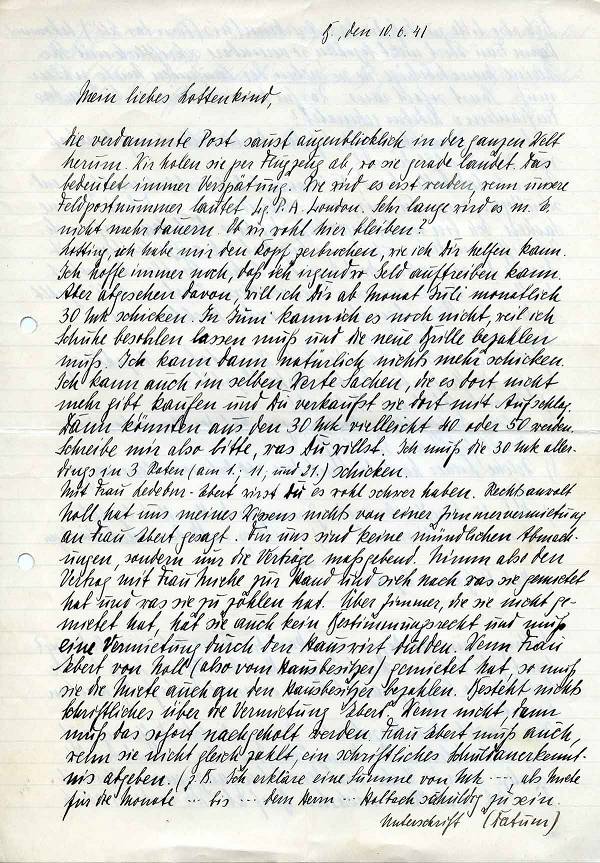 F., den 10.6.41
Mein liebes Lottenkind,
Die verdammte Post saust augenblicklich in der ganzen Welt
herum. Wir holen sie per Flugzeug ab, wo sie gerade landet. Das
bedeutet immer Verspätung. Wie wird es erst werden, wenn unsere
Feldpostnummer lautet Lg. P. A. London. Sehr lange wird es m. E.
nicht mehr dauern. Ob wir wohl hier bleiben?
Lotting, ich habe mir den Kopf zerbrochen, wie ich Dir helfen kann.
Ich hoffe immer noch, daß ich irgendwo Geld auftreiben kann.
Aber abgesehen davon, will ich Dir ab Monat Juli monatlich
30 Mk schicken. Im Juni kann ich es noch nicht, weil ich
Schuhe besohlen lassen muß und die neue Brille bezahlen
muß. Ich kann dann natürlich nichts mehr schicken.
Ich kann auch im selben Werte Sachen, die es dort nicht
mehr gibt kaufen und Du verkaufst sie dort mit Aufschlag.
Dann könnten aus den 30 Mk vielleicht 40 oder 50 werden.
Schreibe mir also bitte, was Du willst. Ich muß die 30 Mk aller-
dings in 3 Raten (am 1.; 11; und 21.) schicken.
Mit Frau Ledebur-Ebert wirst Du es wohl schwer haben. Rechtsanwalt
Noll hat uns meines Wissens nichts von einer Zimmervermietung
an Frau Ebert gesagt. Für uns sind keine mündlichen Abmach-
ungen, sondern nur die Verträge maßgebend. Nimm also den
Vertrag mit Frau Miche zur Hand und sieh nach was sie gemietet
hat und was sie zu zahlen hat. Über Zimmer, die sie nicht ge-
mietet hat, hat sie auch kein Bestimmungsrecht und muß
eine Vermietung durch den Hauswirt dulden. Wenn Frau
Ebert von Noll (also vom Hausbesitzer) gemietet hat, so muß
sie die Miete auch an den Hausbesitzer bezahlen. Besteht nichts
Schriftliches über die Vermietung "Ebert". Wenn nicht, dann
muß das sofort nachgeholt werden. Frau Ebert muß auch,
wenn sie nicht gleich zahlt, ein schriftliches Schuldanerkennt-
nis abgeben. (z. B. Ich erkläre eine Summe von Mk ---- als Miete
für die Monate --- bis --- dem Herrn --- Holbach schuldig zu sein.
Unterschrift (Datum)